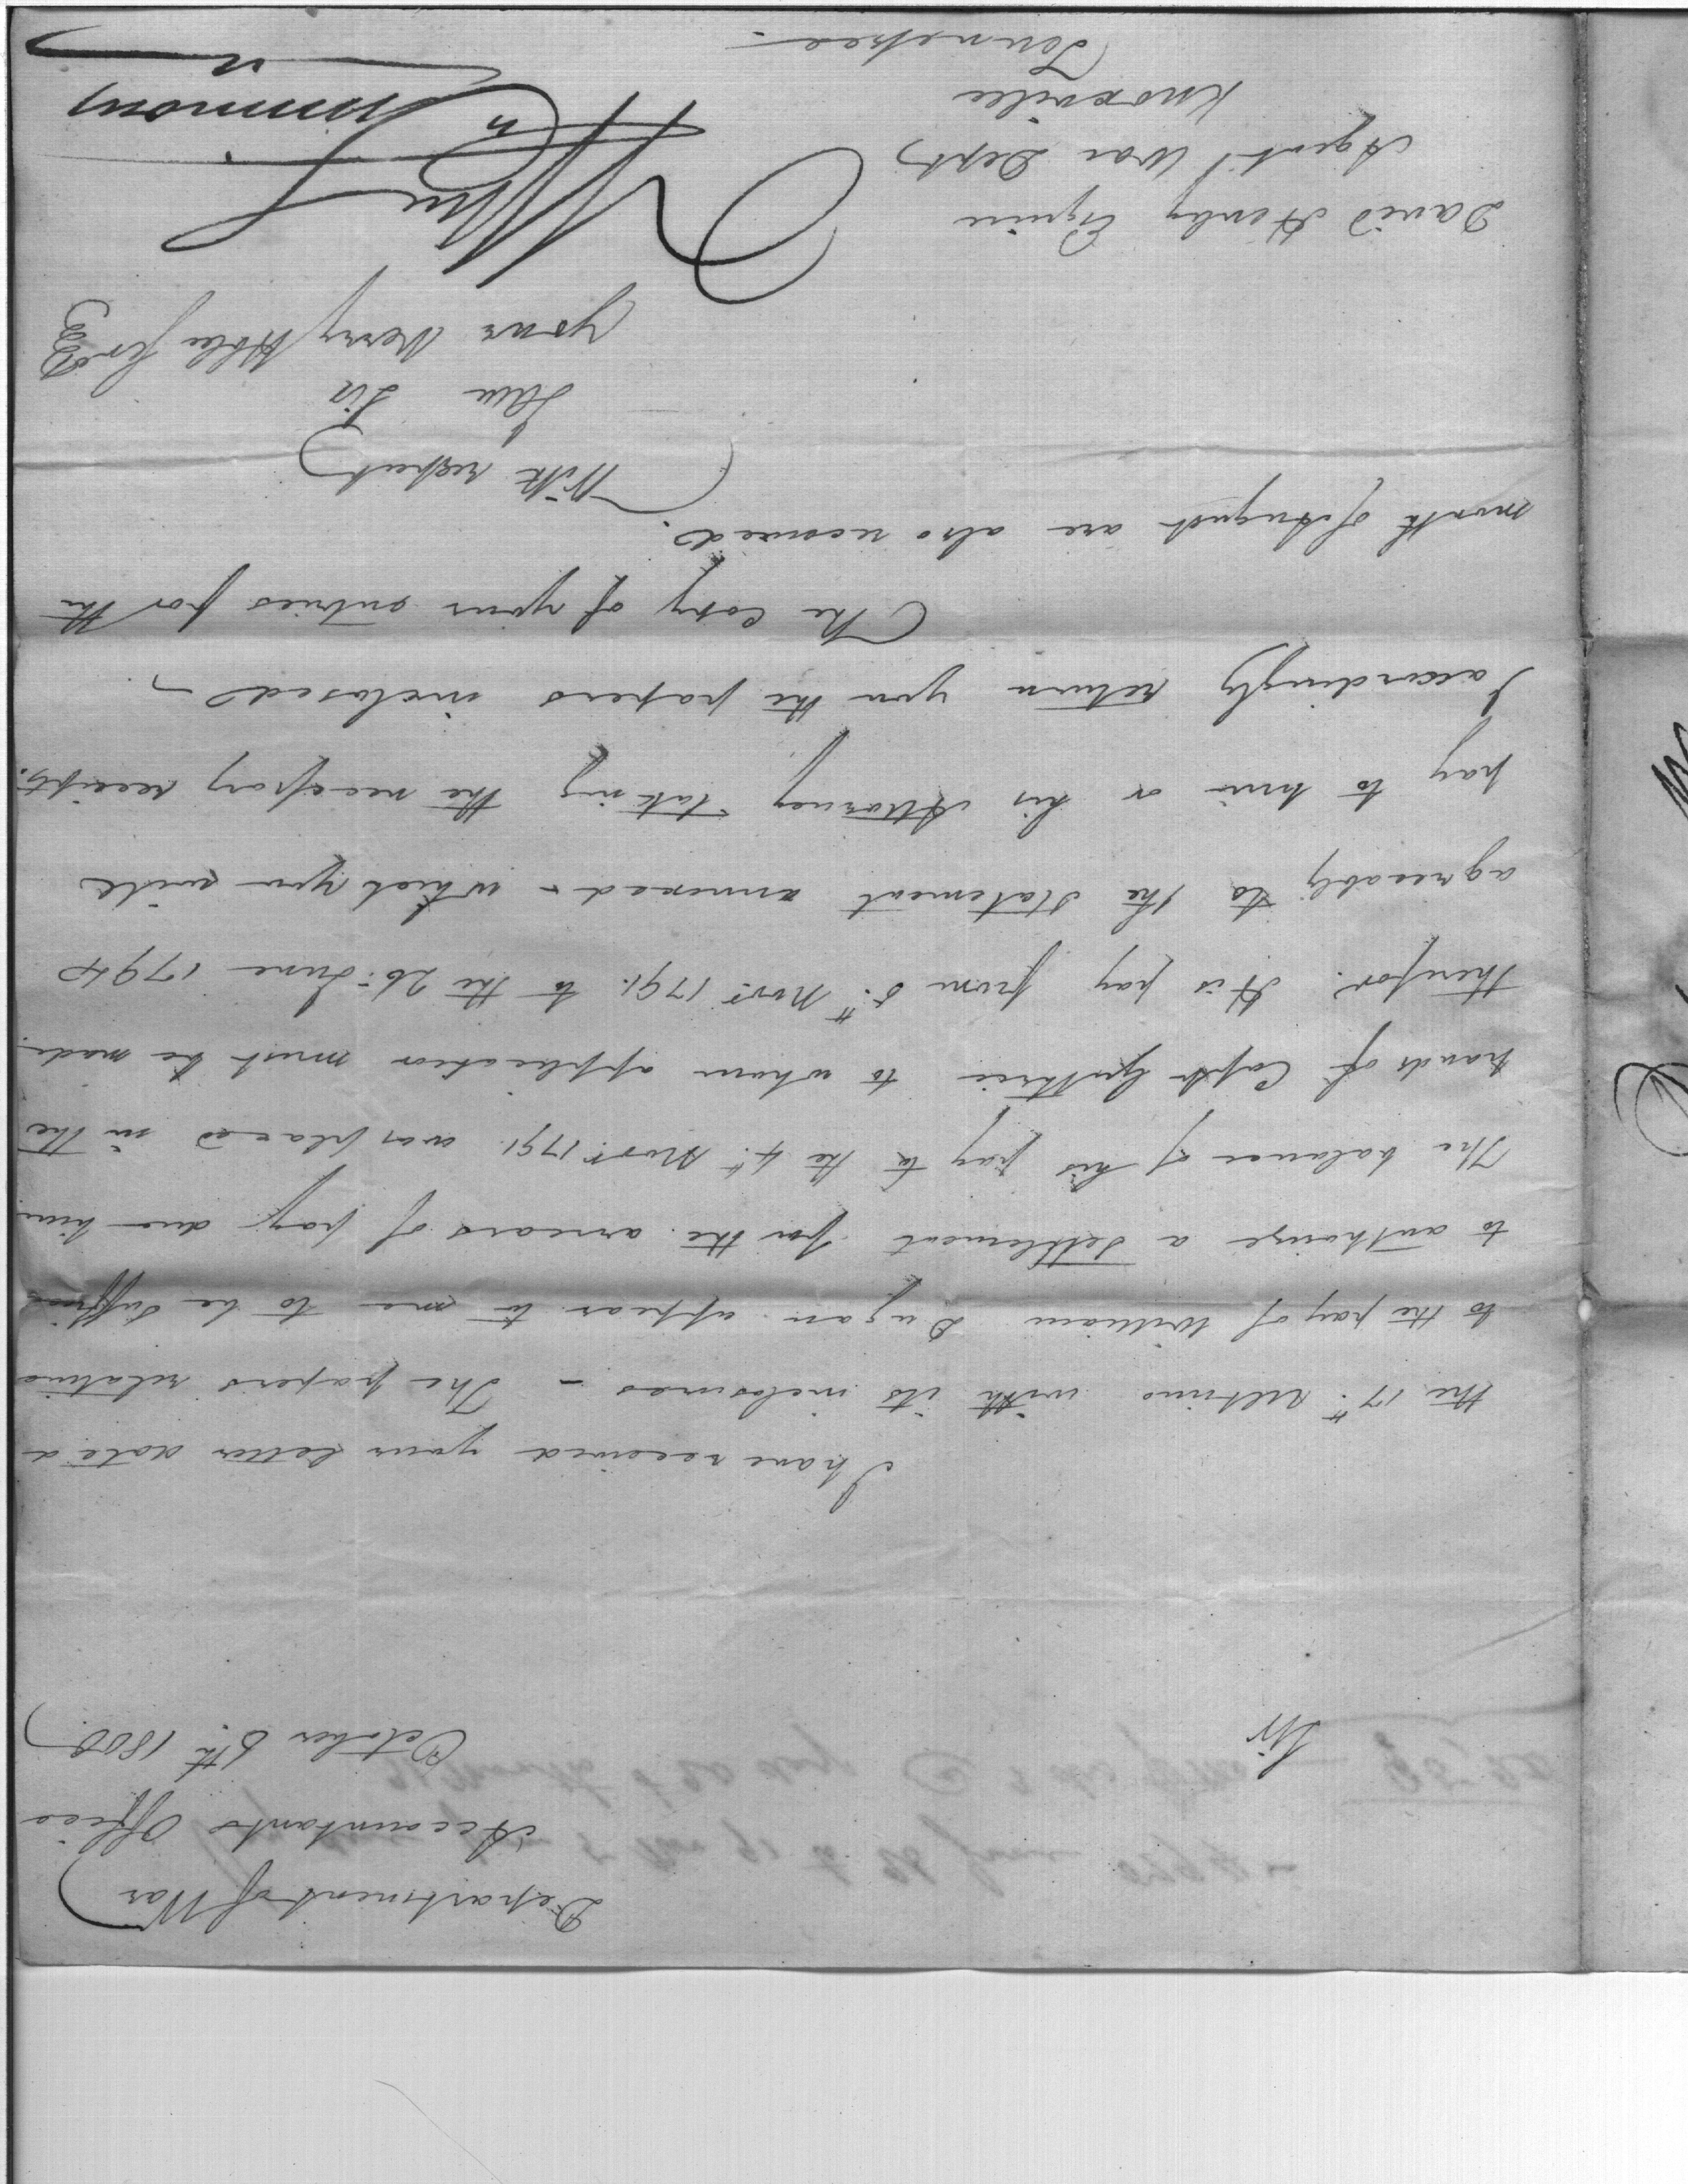 Department of War
Accountants Office
October 6th 1800.
Sir
I have received your letter dated
the 17th Ultimo with its inclosures - The papers relative
to the pay of William Dugan appear to me to be sufficient
to authorize a settlement for the arrears of pay due him
The balance of his pay to the 4th Novr 1791. was placed in the
hands of Capt Guthrie to whom application must be made
therefor. His pay from 5th Novr 1791. to the 26th June 1794
agreeably to the statement annexed - which you will
pay to him or his Attorney, taking the necessary receipts.
I accordingly return you the papers inclosed -
The Copy of your entries for the
month of August are also received.
With respect
I am Sir
your Very Hble Serv
Wm Simmons
David Henley Esquire
Agent War Dept
Knoxville
Tennessee -